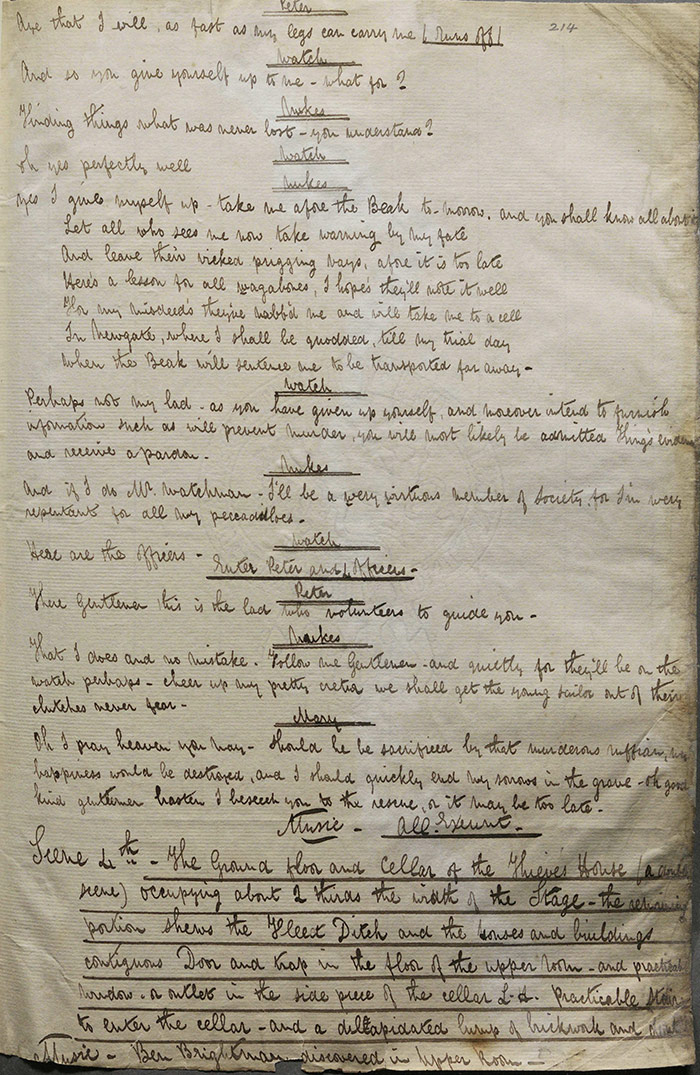 Peter
214
Aye that I will, as fast as my legs can carry me (Runs off)
Watch
And so you give yourself up to me - what for?
Nukes
Finding things what was never lost - you understand?
Watch
Oh yes perfectly well
Nukes
Yes I give myself up - take me afore the Beak to-morrow, and you shall know all about it
Let all who sees me now take warning by my fate
And leave their wicked prigging vays, afore it is too late
Here's a lesson for all wagabones, I hope's they'll note it well
For my misdeed's they've nabb'd me and will take me to a cell
In Newgate, where I shall be quodded, till my trial day
When the Beak will sentence me to be transported far away -
Watch
Perhaps not my lad - as you have given up yourself, and moreover intend to furnish
information such as will prevent murder, you will most likely be admitted King's evidence
and receive a pardon -
Nukes
And if I do Mr Watchman - I'll be a wery wirtuous member of society, for I'm wery
repentant for all my peccadiloes -
Watch
Here are the officers -
Enter Peter and 4 officers -
Peter
There Gentlemen this is the lad who volunteers to guide you -
Nukes
That I does and no mistake. Follow me Gentlemen - and quietly for they'll be on the
watch perhaps - cheer up my pretty cretur we shall get the young sailor out of their
clutches never fear -
Mary
Oh I pray heaven you may - should he be sacrificed by that murderous ruffian, my
happiness would be destroyed, and I should quickly end my sorrows in the grave - oh good
kind gentlemen hasten I beseech you to the rescue, or it may be too late -
Music - All Exeunt -
Scene 4th - The Ground floor and Cellar of the Thieve's House (a double
scene) occupying about 2 thirds the width of the Stage - the remaining
portion shews the Fleet Ditch and the houses and buildings
contiguous Door and trap in the floor of the upper room - and practicable
window or outlet in the side piece of the cellar L.H. Practicable Stairs
to enter the cellar - and a dillapidated lump of brickwork and
Music - Ben Brightman discovered in Upper Room -